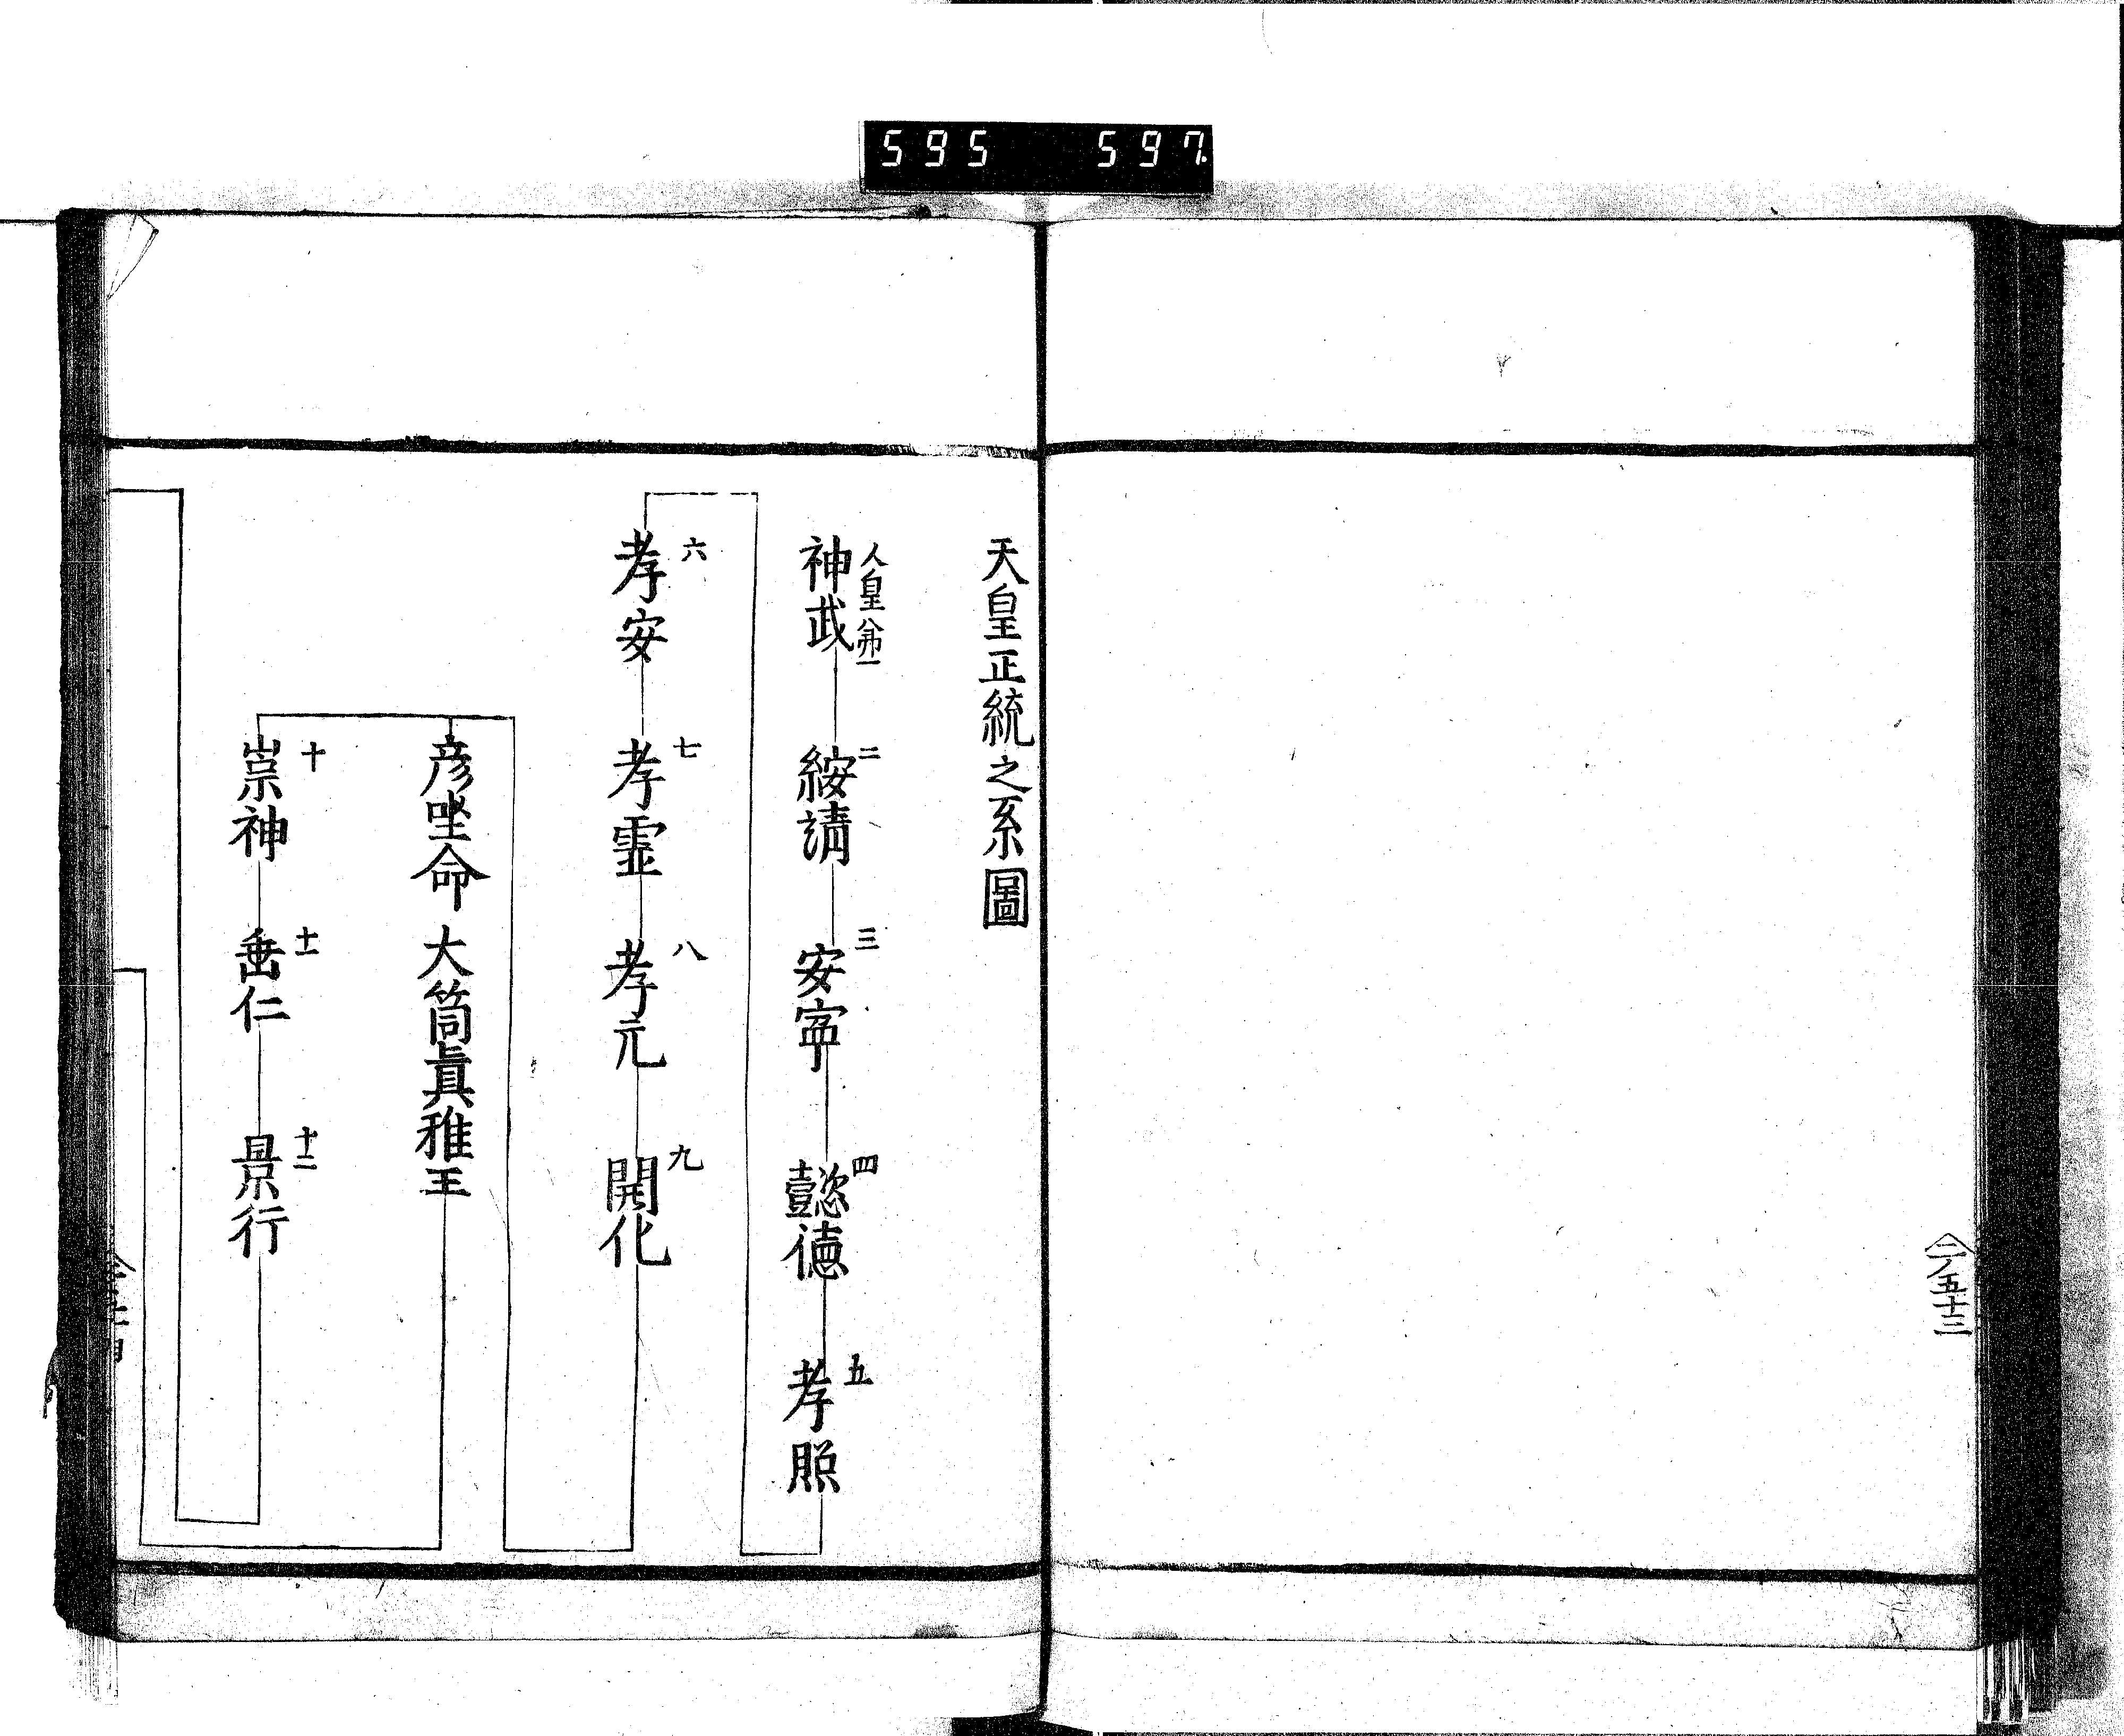 595 597
二ノ五十三
天皇正統之系圖
人皇㐧一
神武
二
綏靖
三
安寧
四
懿德
五
孝照
六
孝安
七
孝霊
八
孝元
九
開化
彦坐命 大筒眞稚王
十
崇神
十一
垂仁
十二
景行